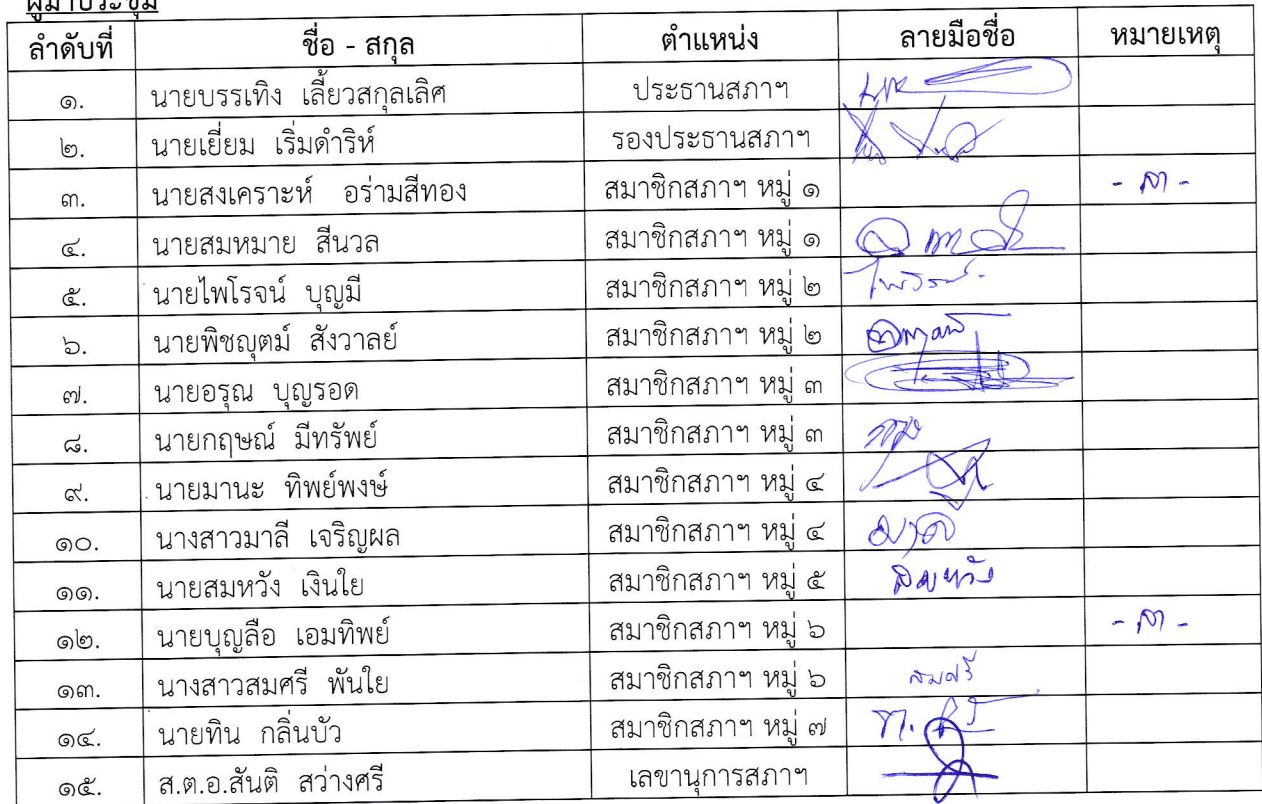 ผู้มาประชุม
ลำดับที่ ชื่อ - สกุล ตำแหน่ง ลายมือชื่อ หมายเหตุ
๑. นายบรรเทิง เลี้ยวสกุลเลิศ ประธานสภาฯ
๒. นายเยี่ยม เริ่มดำริห์ รองประธานสภาฯ
๓. นายสงเคราะห์ อร่ามสีทอง สมาชิกสภาฯ หมู่ ๑ - ลา -
๔. นายสมหมาย สีนวล สมาชิกสภาฯ หมู่ ๑
๕. นายไพโรจน์ บุญมี สมาชิกสภาฯ หมู่ ๒ ไพโรจน์
๖. นายพิชญุตม์ สังวาลย์ สมาชิกสภาฯ หมู่ ๒
๗. นายอรุณ บุญรอด สมาชิกสภาฯ หมู่ ๓
๘. นายกฤษณ์ มีทรัพย์ สมาชิกสภาฯ หมู่ ๓
๙. นายมานะ ทิพย์พงษ์ สมาชิกสภาฯ หมู่ ๔
๑๐. นางสาวมาลี เจริญผล สมาชิกสภาฯ หมู่ ๔ มาลี
๑๑. นายสมหวัง เงินใย สมาชิกสภาฯ หมู่ ๕ สมหวัง
๑๒. นายบุญลือ เอมทิพย์ สมาชิกสภาฯ หมู่ ๖ - ลา -
๑๓. นางสาวสมศรี พันใย สมาชิกสภาฯ หมู่ ๖ สมศรี
๑๔. นายทิน กลิ่นบัว สมาชิกสภาฯ หมู่ ๗
๑๕. ส.ต.อ.สันติ สว่างศรี เลขานุการสภาฯ